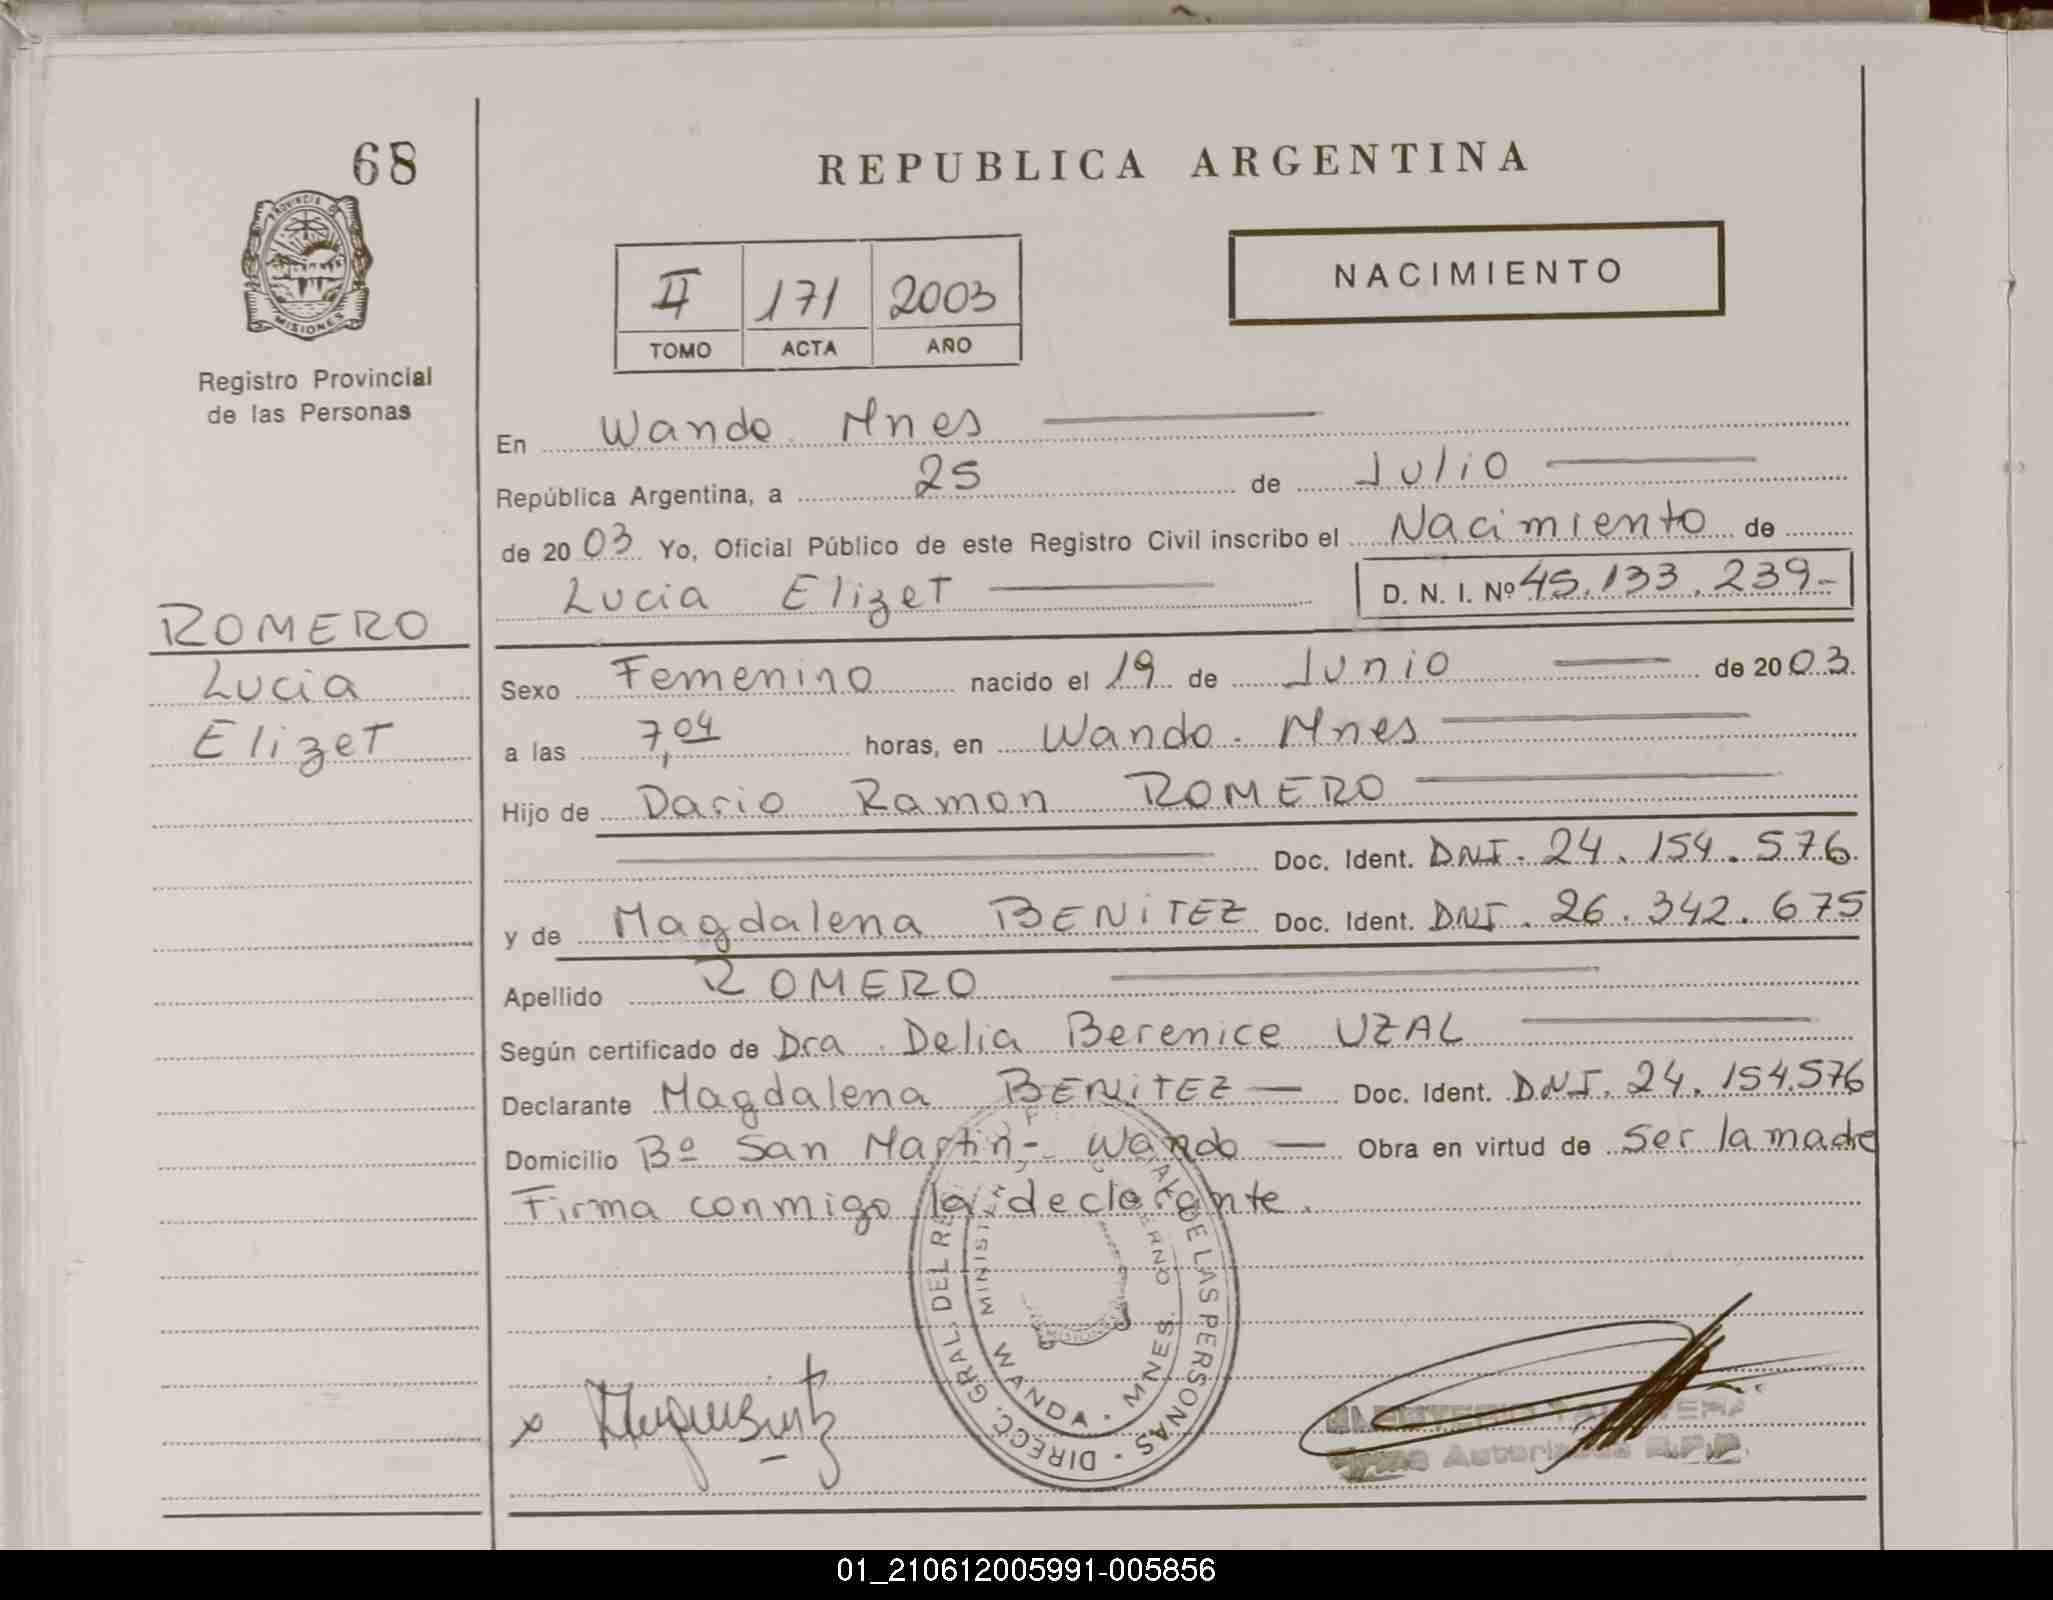 68
REPUBLICA ARGENTINA
PROVINCIA DE
MISIONES
Registro Provincial
de las Personas
NACIMIENTO
II 171 2003
TOMO ACTA AÑO
En Wanda. Mnes
República Argentina, a 25 de Julio
de 2003 Yo, Oficial Público de este Registro Civil inscribo el Nacimiento de
Lucia Elizet D. N. I. Nº 45.133.239-
ROMERO
Lucia
Elizet
Sexo Femenino nacido el 19 de Junio de 2003.
a las 7,04 horas, en Wanda. Mnes
Hijo de Dario Ramon ROMERO
Doc. Ident. DNI. 24.154.576
y de Magdalena BENITEZ Doc. Ident. DNI. 26.342.675
Apellido ROMERO
Según certificado de Dra. Delia Berenice UZAL
Declarante Magdalena BENITEZ — Doc. Ident. DNI. 24.154.576
Domicilio Bº San Martin- Wanda — Obra en virtud de ser la madre
Firma conmigo la declarante.
DIRECC. GRAL. DEL RE DE LAS PERSONAS
WANDA - MNES.
Firma Autorizada R.P.P.
01_210612005991-005856